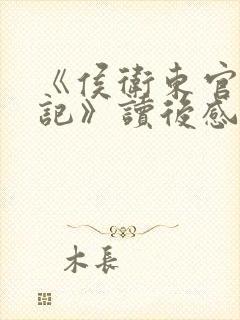 《侯衛東官
記》讀後感
木長